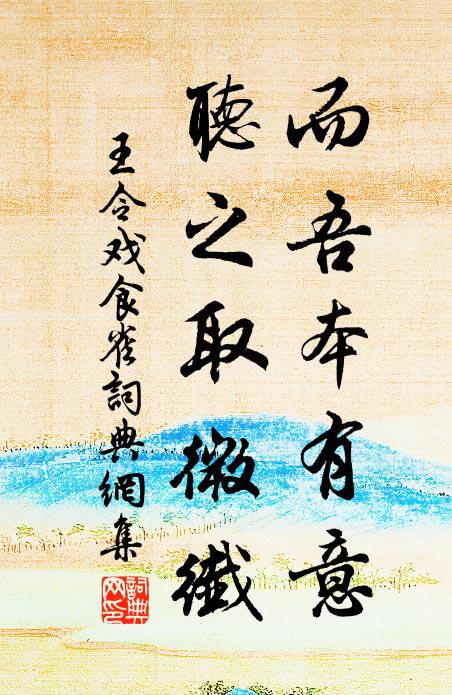 而吾本有意
聽之取微纖
王令戏食雀詞典網集
詞典